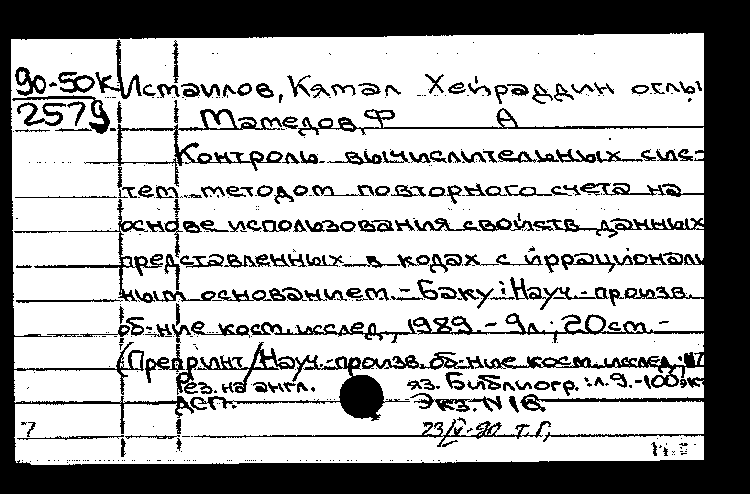 90-50К Исмаилов, Кямал Хейраддин оглы
2579 Мамедов, Ф А
Контроль вычислительных сис-
тем методом повторного счета на
основе использования свойств данных
представленных в кодах с иррациональ
ным основанием. - Баку : Науч.-произв.
об-ние косм. исслед., 1989. - 9л ; 20см. -
(Препринт / Науч.-произв. об-ние косм. исслед.;
Рез. на англ. яз. Библиогр.: л. 9. - 100эк
ДСП. Экз. N 18.
7 23/IV-90 т. Г,